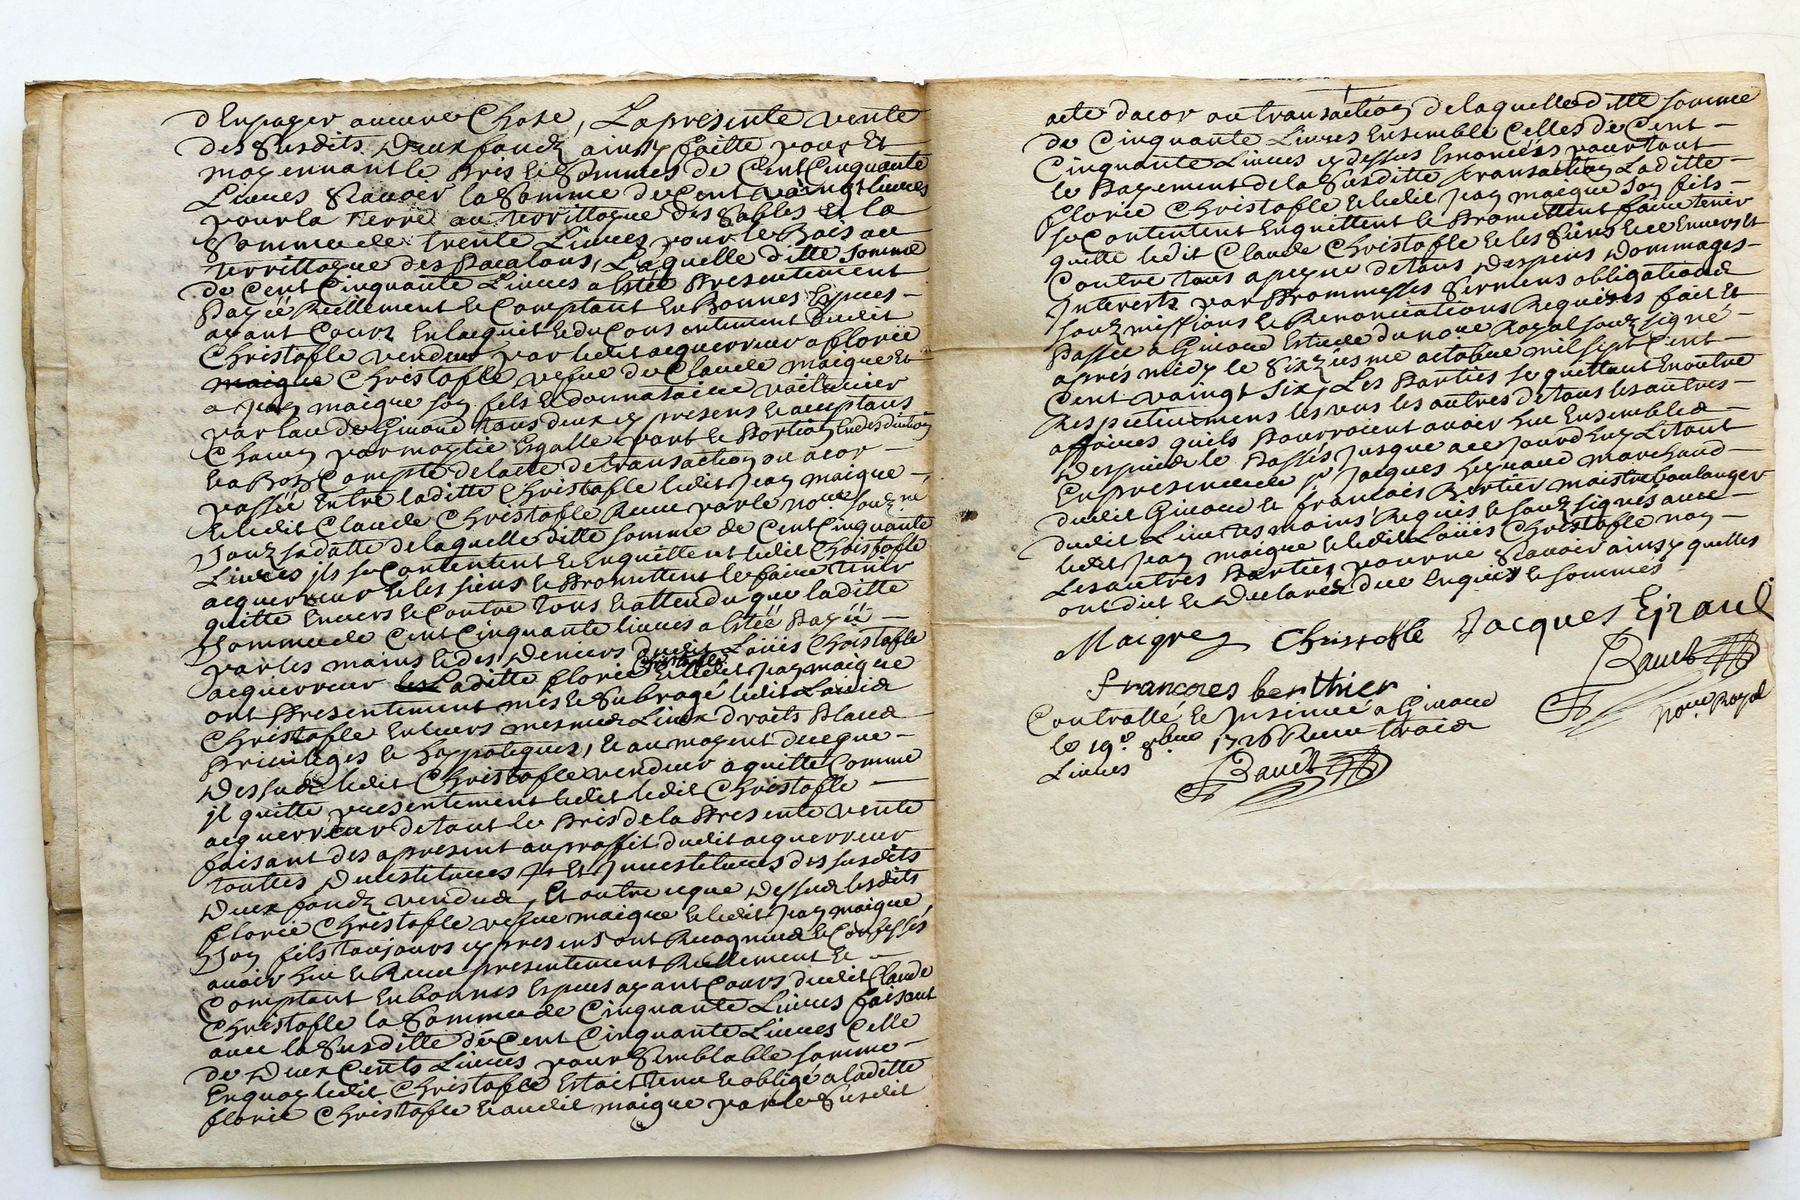 d'Enpayer aucune Chose, La presente vente
des Susdits Deux fondz ainsy faitte pour Et
moyennant le Pris & Somme de Cent Cinquante
Livres Scavoir la Somme de Cent vaingt livres
pour la Terre au territtoyre des Sables Et la
Somme de trente Livres pour le Bois au
territtoyre des , Laquelle ditte Somme
de Cent Cinquante Livres a Estéé Presentement
Payéé Reellement & Comptant En Bonnes Especes
ayant Cours En lacquit & du Consentement dudit
Christofle vendeur par ledit acquerreur a florie
maigre Christofle vefue de Claude maigre Et
a Jean maigre son fils & donnataire
par de Givord tous deux ycy presens & acceptans
Chacun par moytie Esgalle part & Portion
a Bon Compte de lacte de transaction ou acor
passéé Entre laditte Christofle ledit Jean maigre
& ledit Claude Christofle Receu par le nore souz.né
Souz sa datte de laquelle ditte somme de Cent Cinquante
Livres jls se Contentent & Enquittent ledit Christofle
acquerreur & les siens & Promettent le faire tenir
quitte Envers & Contre tous & attendu que laditte
Somme de Cent Cinquante livres a Estéé Payéé
par les mains & des Deniers dudit Loüis Christofle
acquerreur laditte florie Christofle & ledit Jean maigre
ont Presentement mis & Subrogé ledit Loüis
Christofle En leurs mesmes Lieux droits Place
Privileges & hyppoteques, & au moyent de ce que
Dessus ledit Christofle vendeur a quitté Comme
jl quitte presentement ledit ledit Christofle
acquerreur de tout le Pris de la Presente vente
faisant des apresent au proffit dudit acquerreur
touttes Devestitures Et Jnvestitures des susdits
Deux fondz vendus, Et outre ce que Dessus lesdits
florie Christofle vefue maigre & ledit Jean maigre
Son fils toujours ycy presens ont Recognus & Confessés
avoir heu & Receu presentement Réellement &
Comptant En bonnes Especes ayant Cours dudit Claude
Christofle la Somme de Cinquante Livres faisant
avec la Susditte de Cent Cinquante Livres Celle
de Deux Cents Livres pour Semblable somme
En quoy ledit Christofle Estoit tenu & obligé a laditte
florie Christofle & audit maigre par le Susdit
acte dacor ou transaction de laquelle ditte somme
de Cinquante Livres Ensemble Celles de Cent
Cinquante Livres cy dessus Enoncéés pour tout
le Payement de la Susditte transaction Laditte
florie Christofle & ledit Jean maigre son fils
se Contentent Enquittent & Promettent faire tenir
quitte ledit Claude Christofle & les Siens Envers Et
Contre tous a peyne de tous Despens Dommages
Jnterests par Prommesses Sermens obligations
souzmissions & Renonciations Requises fait Et
Passéé a Givord Estude du nore Royal souz signé
aprés midy le Sixziesme octobre mil sept Cent
Cent vaingt Six, Les Parties se quittant En outre
Respectivement les uns les autres de tous les autres
affaires quils Pourroient avoir heu Ensembles
Despuis le Passés jusque a ce jourd'huy Le tout
En presence de sr Jacques Marchand
dudit Givord & francois Bertier maistre boulanger
dudit Lieu tesmoins Requis & souz signés avec
ledit Jean maigre & ledit Loüis Christofle non
les autres Parties pour ne Scavoir ainsy quelles
ont dict & Declarés de ce Enquis & sommés
Maigre Christofle Jacques
Bauct
francoies berthier
nore Royal
Controllé & Jnsinué a Givord
le 19e 8bre 1726 Receu trois
Livres
Bauct